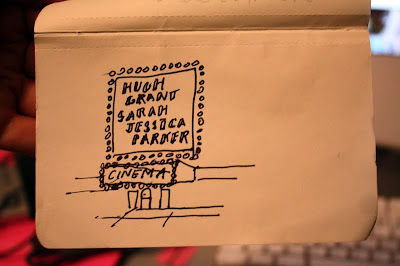 HUGH
GRANT
SARAH
JESSICA
PARKER
CINEMA